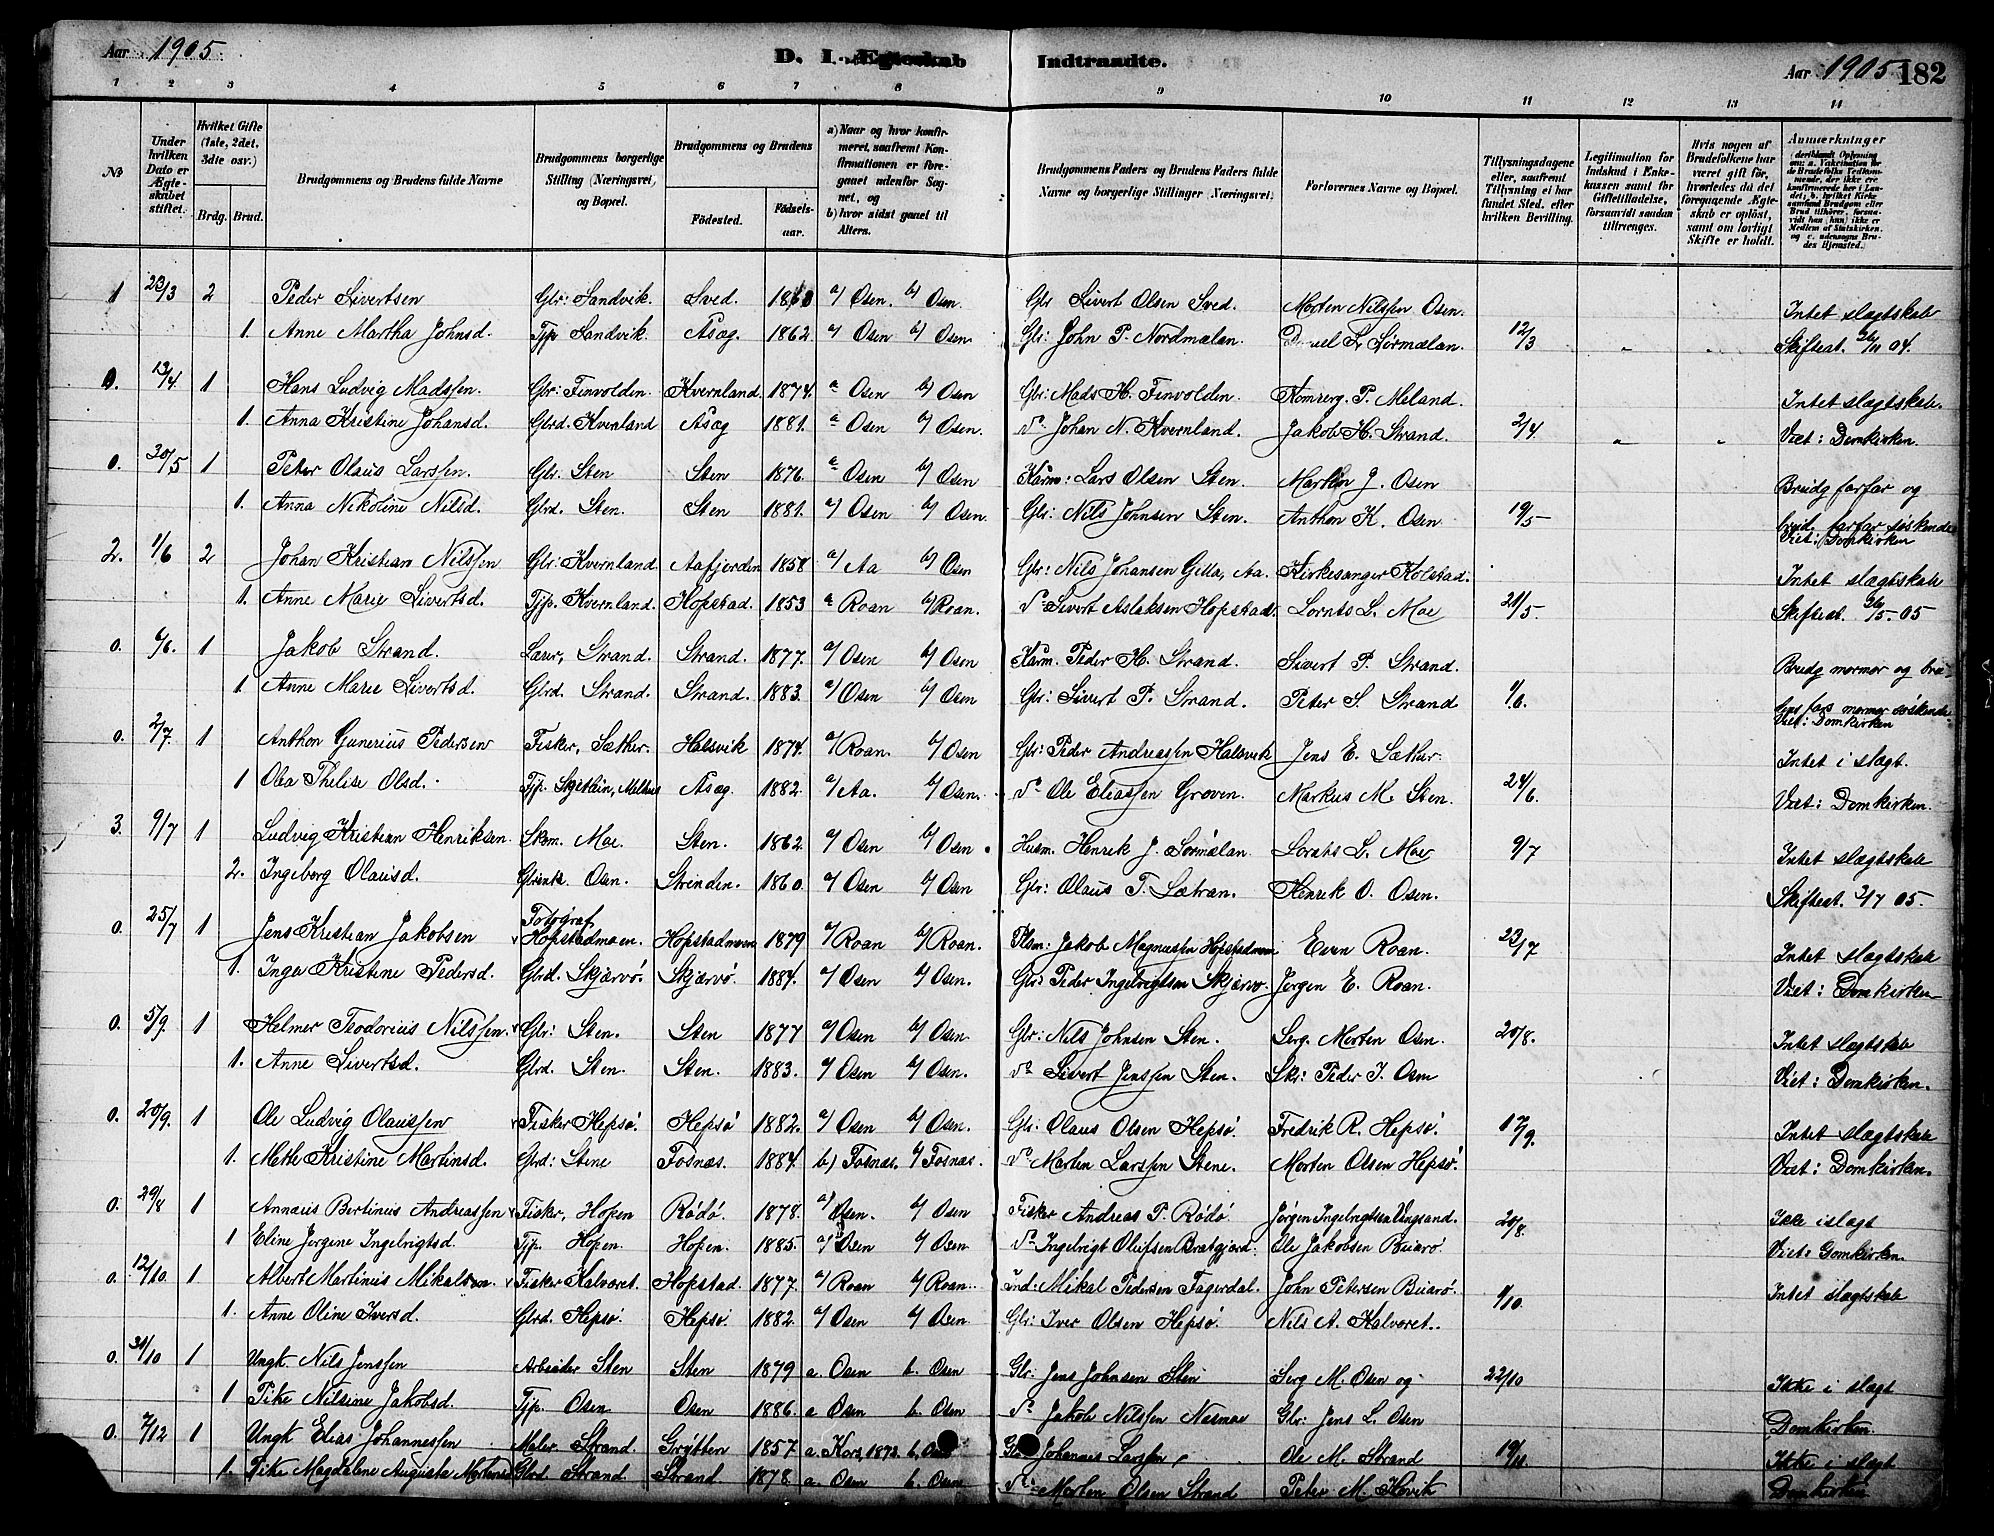 Aar 1905. D. I. Egteskab Indtraadte. Aar 1905 182
1 2 3 4 5 6 7 8 9 10 11 12 13 14
No
Under hvilken Dato er Ægteskabet stiftet.
Hvilket Gifte (1ste, 2det, 3die osv.)
Brdg. Brud.
Brudgommens og Brudens fulde Navne
Brudgommens borgerlige Stilling (Næringsvei, og Bopæl.
Brudgommens og Brudens
Fødested. Fødselsaar.
a) Naar og hvor konfirmeret, saafremt Konfirmationen er foregaaet udenfor Sognet, og
b) hvor sidst gaaet til Alters.
Brudgommens Faders og Brudens Faders fulde Navne og borgerlige Stillinger (Næringsvei)
Forlovernes Navne og Bopæl.
Tillysningsdagene eller, saafremt Tillysning ei har fundet Sted, efter hvilken Bevilling.
Legitimation for Indskud i Enkekassen samt for Giftetilladelse, forsaavidt saadan tiltrænges.
Hvis nogen af Brudefolkene har været gift før, hvorledes da det foregaaende Ægteskab er opløst, samt om lovligt Skifte er holdt.
Anmærkninger
1 23/3 2 Peder Sivertsen Gbr: Sandvik. Sved. 1860 a/ Osen. b/ Osen. Gbr Sivert Olsen Sved. Morten Nilssen Osen. Intet slægtskab
1. Anne Martha Johnsd. Tjp Sandvik. Asæg 1862. a/ Osen b/ Osen. Gbr: John P. Nordmælan. L. Sørmælan. 12/3 " " Skifteat. 26/11 04.
0. 13/4 1 Hans Ludvig Madssen. Gbr: Finvolden Kvernland. 1874. a Osen b/ Osen Gbr: Mads H. Finvolden P. Meland. Intet slægtskab.
1. Anna Kristine Johansd. Gbrd. Kvernland Asæg 1881. a Osen b/ Osen. d° Johan N. Kvernland. Jakob H. Strand. 2/4 " " Viet: Domkirken.
0. 30/5 1 Peter Olaus Larssen. Gbr. Sten Sten 1876. a Osen b/ Osen Kårm: Lars Olsen Sten. Martin J. Osen Brudg farfar og
1. Anna Nikoline Nilsd. Gbrd. Sten. Sten 1881. a/ Osen b/ Osen. Gbr: Nils Johnsen Sten. Anthon K. Osen. 19/5 brud. farfar søskende Viet: Domkirken
2. 1/6 2 Johan Kristian Nilssen Gbr: Kvernland. Aafjorden 1858 a/ Aa b/ Osen Gbr: Nils Johansen Gilla, Aa. Kirkesanger Kolstad. Intet slægtskab
1. Anne Marie Sivertsd. Tjp. Kvernland. Hopstad. 1853 a Roan b/ Roan. d° Sivert Aslaksen Hopstad. Lornts L. Moe 21/5. Skifteat. 26/5-05
0. 6/6. 1 Jakob Strand. Lærer, Strand. Strand. 1877. a/ Osen b/ Osen Kårm. Peder H. Strand. Sivert P. Strand. Brudg mormor og bru-
1. Anne Marie Sivertsd. Gbrd. Strand. Strand. 1883. a/ Osen b/ Osen. Gbr: Sivert P. Strand. Peter S. Strand 1/6. dens fars mormor søskende Viet: Domkirken
0. 2/7. 1 Anthon Gunerius Pedersen Fisker, Sæther. Halsvik 1874. a/ Roan. b/ Osen Gbr: Peder Andreassen Halsvik Jens E. Sæther. Intet i slægt.
1 Olea Thelise Olsd. Tjp. Asæg 1882. a/ Aa. b/ Osen. d° Ole Eliassen Groven. Markus M. Sten. 24/6. Viet: Domkirken.
3. 9/7 1 Ludvig Kristian Henriksen Skom. Moe. Sten. 1862. a/ Osen b/ Osen. Husm. Henrik J. Sørmælan. Lornts L. Moe 9/7 Intet slægtskab
2. Ingeborg Olausd. Gbrenke Osen. Strinden. 1860. a/ Osen b/ Osen Gbr: Olaus T. Sætran. Henrik O. Osen. Skifteat. 3/7 05.
0. 25/7 1 Jens Kristian Jakobsen Fotograf Hopstadmoen. Hopstadmoen 1879 a/ Roan b/ Roan. Jakob Magnussen Hopstadmoen Even Roan. 23/7 Intet slægtskab
1. Inga Kristine Pedersd. Gbrd. Skjærvø. Skjærvø. 1884. a/ Osen b/ Osen. Gbr: Peder Ingebrigtsen Skjærvø. Jørgen E. Roan. Viet: Domkirken
0. 5/9. 1 Helmer Teodorius Nilssen. Gbr: Sten. Sten 1877 a/ Osen b/ Osen. Gbr: Nils Johnsen Sten. Serg. Morten Osen. 20/8. Intet slægtskab
1. Anne Sivertsd. Gbrd. Sten. Sten. 1883. a/ Osen b/ Osen. d° Sivert Jenssen Sten. Skr: Peder J. Osen Viet: Domkirken.
0. 20/9. 1 Ole Ludvig Olaussen Fisker Hepsø. Hepsø 1882. a/ Osen b/ Osen. Gbr: Olaus Olsen Hepsø. Fredrik R. Hepsø. 17/9. Intet slægtskab
1. Mette Kristine Martinsd. Gbrd: Stene Fosnæs. 1884. b) Fosnæs. b/ Fosnæs. d° Martin Larssen Stene. Morten Olsen Hepsø. Viet: Domkirken.
0. 29/8 1 Annæus Bertinius Andreassen Fisker, Hopen Rødø. 1878. a/ Osen. b/ Osen Fisker Andreas P. Rødø. Jørgen Ingebrigtsen Vingsand. 20/8. Ikke islægt
1 Eline Jørgine Ingebrigtsd. Tjp. Hopen. Hopen. 1885. a/ Osen b/ Osen. d° Ingebrigt Olufsen Bratgjerd. Ole Jakobsen Buarø. Viet: Domkirken.
0. 12/10. 1 Albert Martinius Mikalsen. Fisker Kalvøret. Hopstad. 1877. a/ Roan b/ Roan. Ind: Mikal Pedersen Fagerdal. John Petersen Buarø. Intet slægtskab
1. Anne Oline Iversd. Gbrd. Hepsø. Hepsø 1882. a/ Osen b/ Osen. Gbr: Iver Olsen Hepsø. Nils A. Kalvøret. 1/10.
0. 31/10 1 Ungk. Nils Jenssen Arbeider Sten Sten 1879 a. Osen b. Osen Gbr. Jens Johnsen Sten Serg M. Osen og 22/10 Ikke i slægt
1 Pike Nilsine Jakobsd. Tjp. Osen Osen 1886. a Osen b. Osen d° Jakob Nilssen Næsmoe Gbr: Jens L. Osen Domkirken.
0. 7/12 1 Ungk Elias Johannessen Maler Strand. Grytten 1857 a. Kors, 1873. b. Osen Johannes Larssen Ole M. Strand 19/11. Ikke i slægt
1. Pike Magdalene Augusta Mortensd Gbrd Strand Strand 1878. a. Osen b. Osen d° Morten Olsen Strand Peter M. Hovik Domkirken